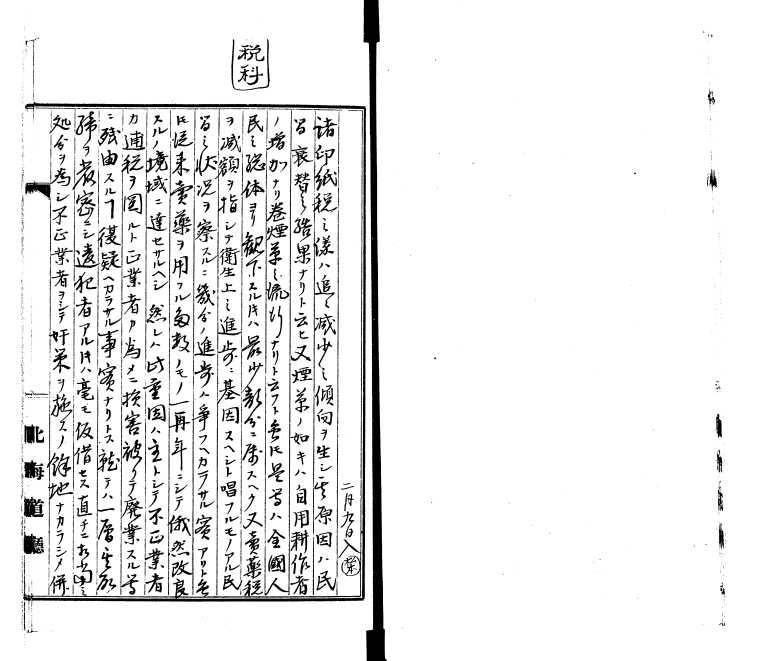 税科
二月九日入
諸印紙税之儀ハ追々減少之傾向ヲ生シ其原因ハ民
間衰替之結果ナリト云ヒ又煙草ノ如キハ自用耕作者
ノ増加ナリ巻煙草之流行ナリト云フト雖モ是等ハ全國人
民之総体ヨリ観下スルトキハ最少部分ニ属スヘク又賣藥税
ヲ减額ヲ指シテ衛生上之進歩ニ基因スヘシト唱フルモノアル民
間之状况ヲ察スルニ幾分ノ進歩ハ争フヘカラサル実アリト雖
モ従来賣藥ヲ用フル多数ノモノ一再年ニシテ俄然改良
スルノ境域ニ達セサルヘシ然レハ此重因ハ主トシテ不正業者
カ逋税ヲ図ルト正業者カ為メニ損害被リテ廃業スル等
ニ職由スルヿ復疑ヘカラサル事実ナリトス就テハ一層其取
締ヲ厳密ニシ違犯者アルトキハ毫モ仮借セス直チニ相當之
処分ヲ為シ不正業者ヲシテ奸策ヲ施スノ餘地ナカラシメ併
北海道廳